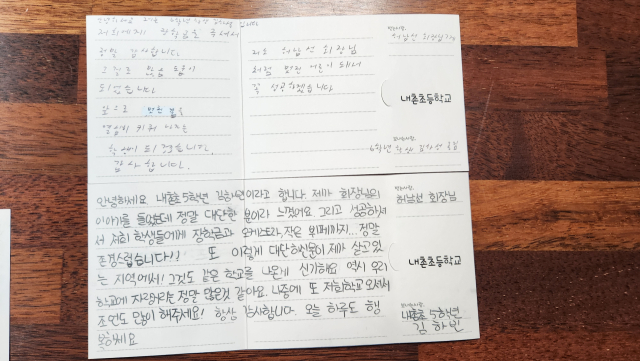 저희에게 장학금을 주셔서
정말 감사합니다
그 말로 많은 도움이
되었습니다
앞으로 만든 꿈을
열심히 키워 나가는
학생이 되겠습니다.
감사합니다.
저도 허남선 회장님
처럼 멋진 어른이 돼서
꼭 성공하겠습니다
받는사람
허남선 회장님께
내촌초등학교
보내는사람
6학년
안녕하세요 내촌초 5학년 김하민이라고 합니다 제가 회장님의
이야기를 들었는데 정말 대단한 분이라 느꼈어요 그리고 성공하셔
서 저희 학생들에게 장학금과 오케스트라, 작은 뷔페까지... 정말
존경스럽습니다!! 또 이렇게 대단하신분이 제가 살고있
는 지역에서! 그것도 같은 학교를 나온게 신기해요 역시 우리
학교에 자랑거리는 정말 많은것 같아요. 나중에 또 저희학교 오셔서
조언도 많이 해주세요! 항상 감사합니다. 오늘 하루도 행
복하세요
받는사람
허남선 회장님
내촌초등학교
보내는사람
내촌초 5학년
김하민